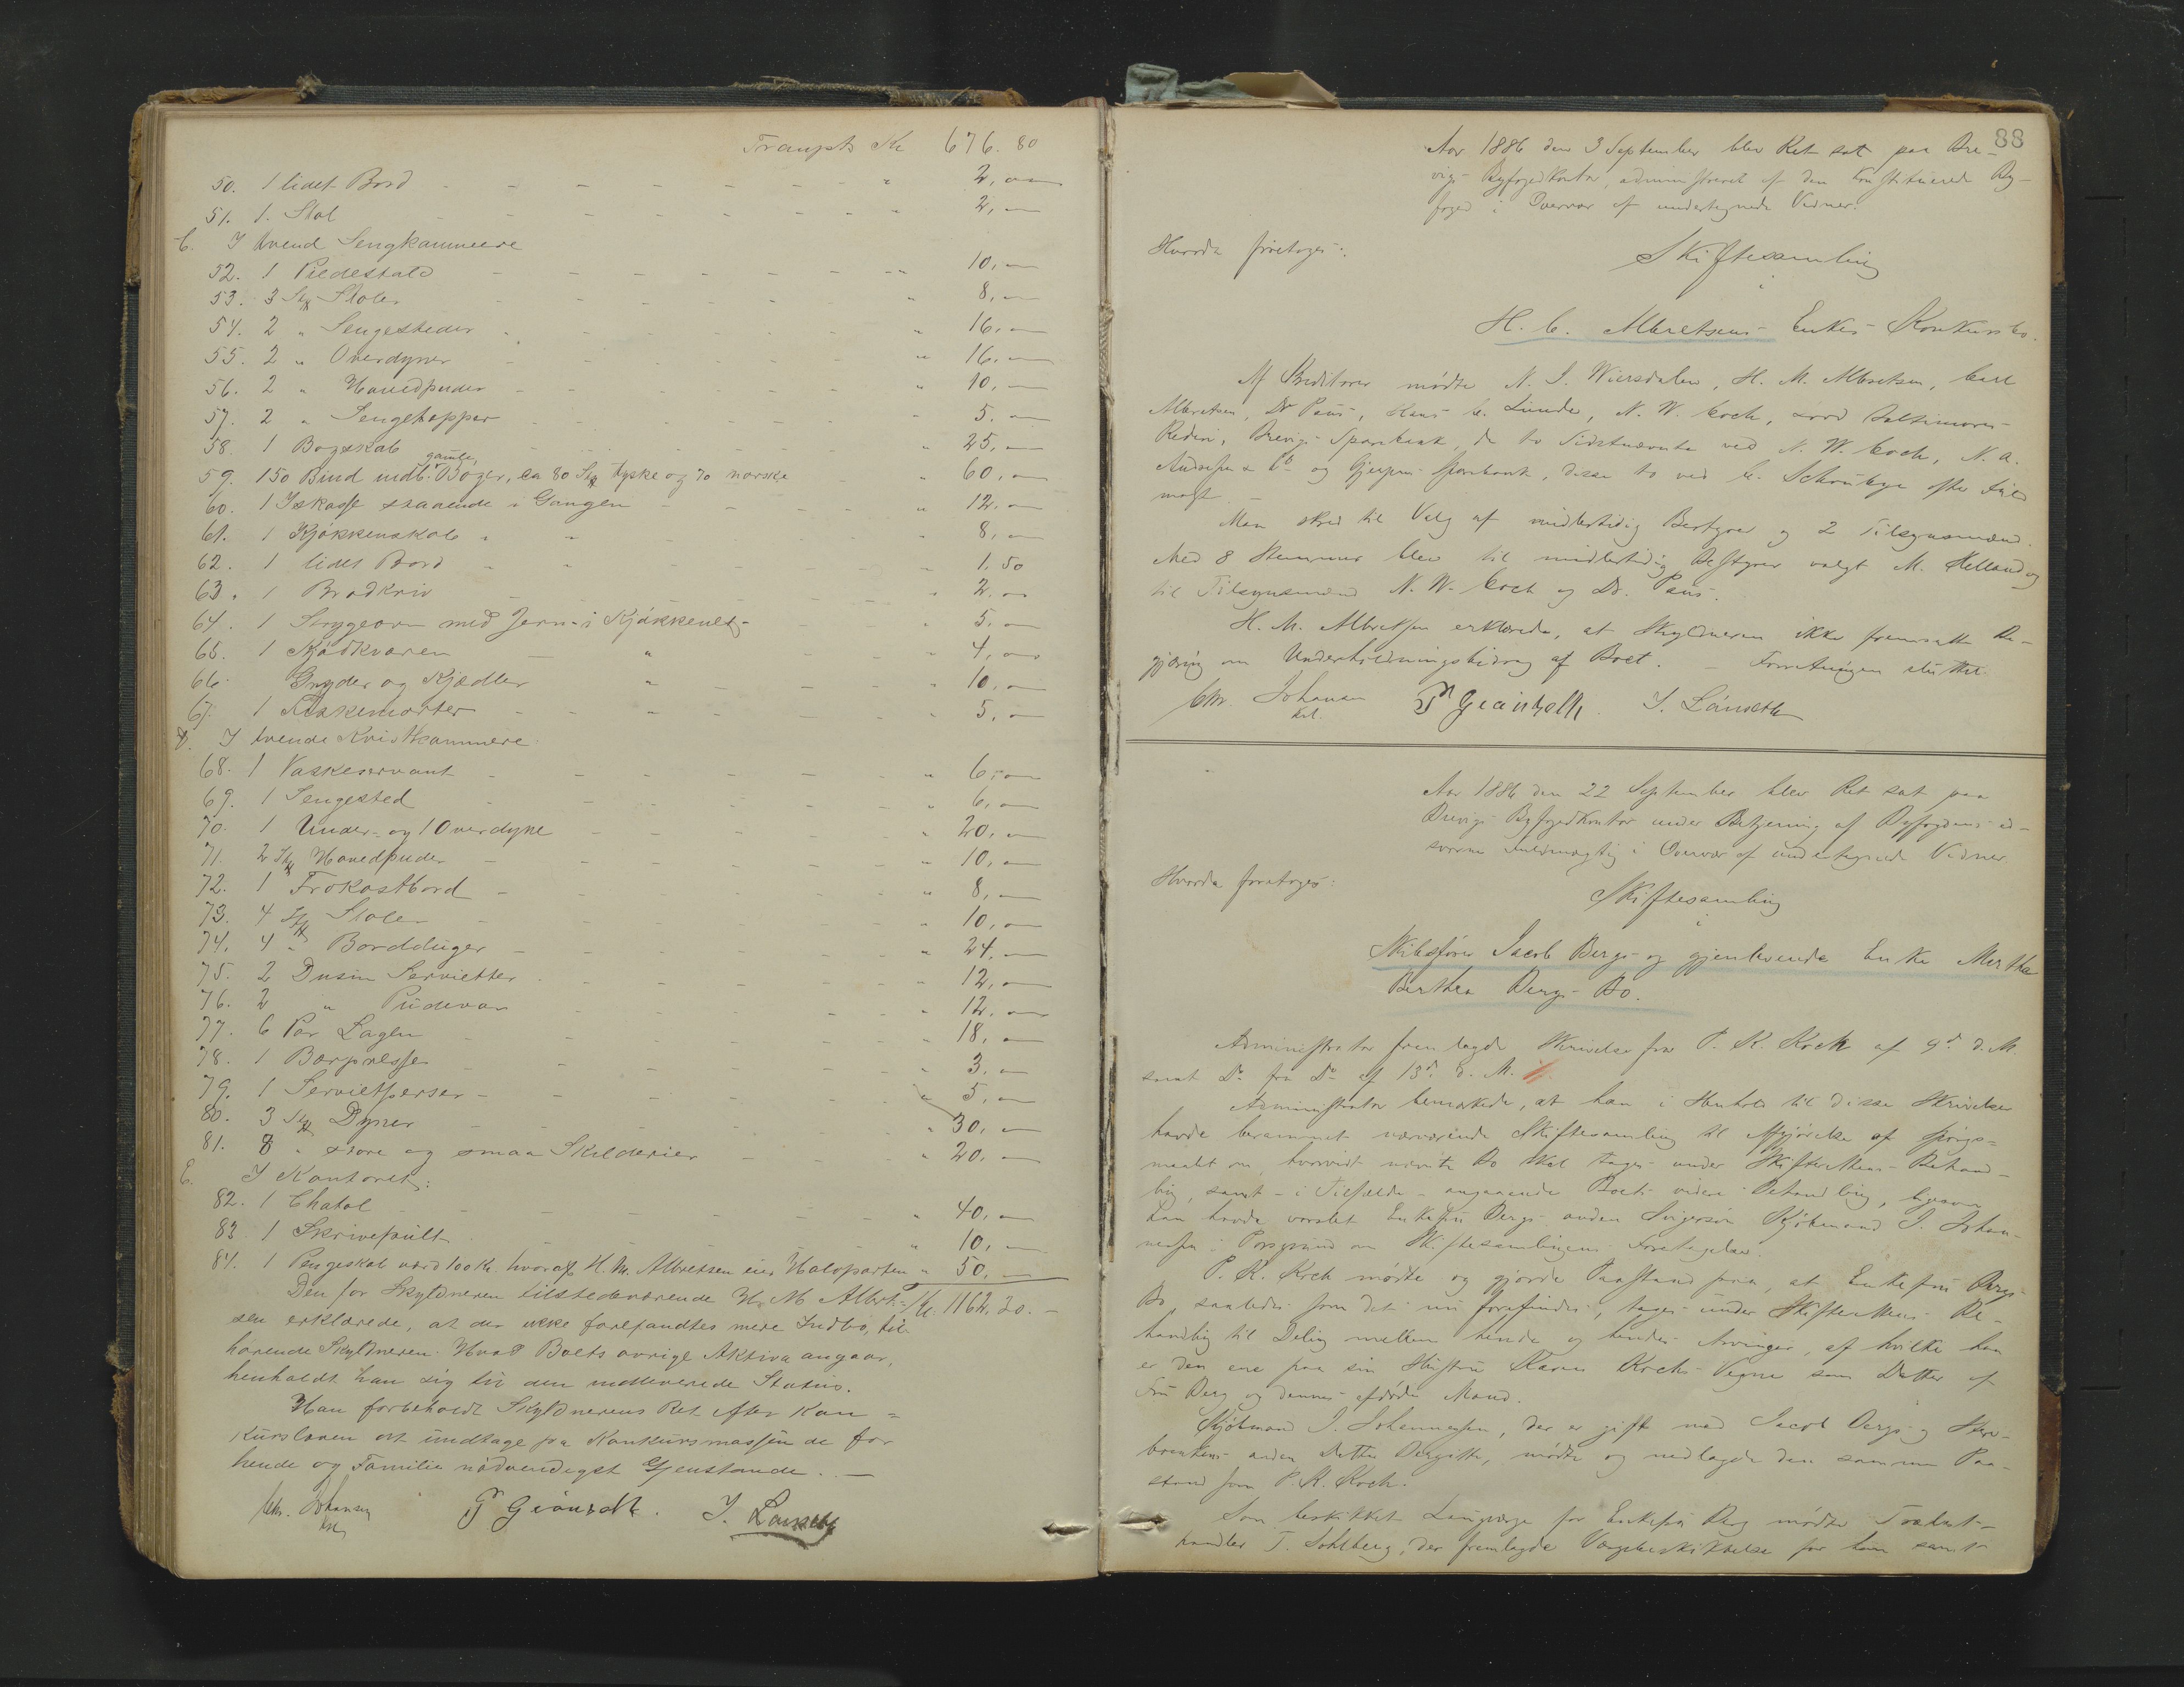 Transpt. Kr 676. 80
50. 1 lidet Bord - - - " 2, "
51. 1 Stol - - - " 2, "
C. I tvend Sengkammere
52. 1 Piedestald - - - " 10, "
53. 3 Stk Stoler - - - " 8, "
54. 2 " Sengesteder - - - " 16, "
55. 2 " Overdyner - - - " 16, "
56. 2 " Hovedpuder - - - " 10, "
57. 2 " Sengetepper - - - " 5, "
58. 1 Bogskab - - - " 25, "
59. 150 Bind indb. gamle Bøger, ca 80 Stk tyske og 70 norske " 60, "
60. 1 Iskasse staaende i Gangen - - - " 12, "
61. 1 Kjøkkenskab - - - " 8, "
62. 1 lidet Bord - - - " 1. 50
63. 1 Brødkniv - - - " 2, "
64. 1 Strygeovn med Jern i Kjøkkenet - - - " 5, "
65. 1 Kjødkværn - " - - " 4, "
66. Gryder og Kjedler " - - " 10, "
67. 1 Morter - - - " 5, "
D. I tvende Kvistkammere
68. 1 Vaskeservant - - - " 6, "
69. 1 Sengested - - - " 6, "
70. 1 Under- og 1 Overdyne - - - " 20, "
71. 2 Stk Hovedpuder - - - " 10, "
72. 1 Frokostbord - - - " 8, "
73. 4 Stk Stoler - - - " 10, "
74. 4 " Bordduger - - - " 24, "
75. 2 Dusin Servietter - - - " 12, "
76. 2 " Pudevar - - - " 12, "
77. 6 Par Lagen - - - " 18, "
78. 1 Bærpresse - - - " 3, "
79. 1 Servietperse - - - " 5, "
80. 3 Stk Dyner - - - " 30, "
81. 8 " store og smaa Skilderier - - - " 20, "
E. I Kontoret:
82. 1 Chatol - - - " 40, "
83. 1 Skrivepult - - - " 10, "
84. 1 Pengeskab værd 100 Kr. hvoraf H. M. Albretsen eier Halvparten " 50, "
Den for Skyldneren tilstedeværende H. M. Albret- Kr. 1162. 30. -
sen erklærede, at der ikke forefandtes mere Indbo, til-
hørende Skyldneren. Hvad Boets øvrige Aktiva angaar,
henholdt han sig til den indleverede Status.
Han forbeholdt Skyldnerens Ret efter Kon-
kursloven at undtage fra Konkursmassen de for
hende og Familie nødvendigst Gjenstande. -
Chr. Johansen
P Grønvold. J. Lønseth
88
Aar 1886 den 3 September blev Ret sat paa Bre-
vigs Byfogedkontor, administreret af den konstituerede By-
foged i Overvær af undertegnede Vidner.
Hvorda foretoges:
Skiftesamling
i
H. C. Albretsens Enkes Konkursbo.
Af Kreditorer mødte N. J. Wiersdalen, H. M. Albretsen, Carl
Albretsen, Dr Paus, Hans C. Lunde, N. W. Coch, Baltimores
Rederi, Brevigs Sparebank, de to Sidstnævnte ved N. W. Coch, N. A.
Andresen & Co og Gjerpens Sparebank, disse to ved C. Schoubye efter Fuld-
magt.
Man skred til Valg af midlertidig Bestyrer og 2 Tilsynsmænd.
Med 8 Stemmer blev til midlertidig Bestyrer valgt M. Helland og
til Tilsynsmænd N. W. Coch og Dr. Paus.
H. M. Albretsen erklærede, at Skyldneren ikke fremsatte Be-
gjæring om Underholdningsbidrag af Boet. - Forretningen sluttet.
Chr. Johansen
kst.
P Grønvold. J. Lønseth
Aar 1886 den 22 September blev Ret sat paa
Brevigs Byfogedkontor under Betjening af Byfogdens ed-
svorne Fuldmægtig i Overvær af undertegnede Vidner.
Hvorda foretoges:
Skiftesamling
i
Skibsfører Jacob Bergs og gjenlevende Enke Mertha
Berthea Bergs Bo.
Administrator fremlagde Skrivelse fra P. K. Koch af 9d d. M.
samt Do fra Do af 13d d. M.
Administrator bemærkede, at han i Henhold til disse Skrivelser
havde berammet nærværende Skiftesamling til Afgjørelse af Spørgs-
maalet om, hvorvidt nævnte Bo skal tages under Skifterettens Behand-
ling, samt - i Tilfælde - angaaende Boets videre Behandling, ligesom
han havde varslet Enkefru Bergs anden Svigersøn Kjøbmand J. Johan-
nessen i Porsgrund om Skiftesamlingens Foretagelse.
P. K. Koch mødte og gjorde Paastand paa, at Enkefru Bergs
Bo, saaledes som det nu forefindes, tages under Skifterettens Be-
handling til Deling mellem hende og hendes Arvinger, af hvilke han
er den ene paa sin Hustru Karen Kochs Vegne som Datter af
Fru Berg og dennes afdøde Mand.
Kjøbmand J. Johannessen, der er gift med Jacob Bergs og
anden Datter Bergitte, mødte og nedlagde den samme Paa-
stand som P. K. Koch.
Som beskikket Laugværge for Enkefru Berg mødte
handler T. Sohlberg, der fremlagde Værgebeskikkelse for ham samt